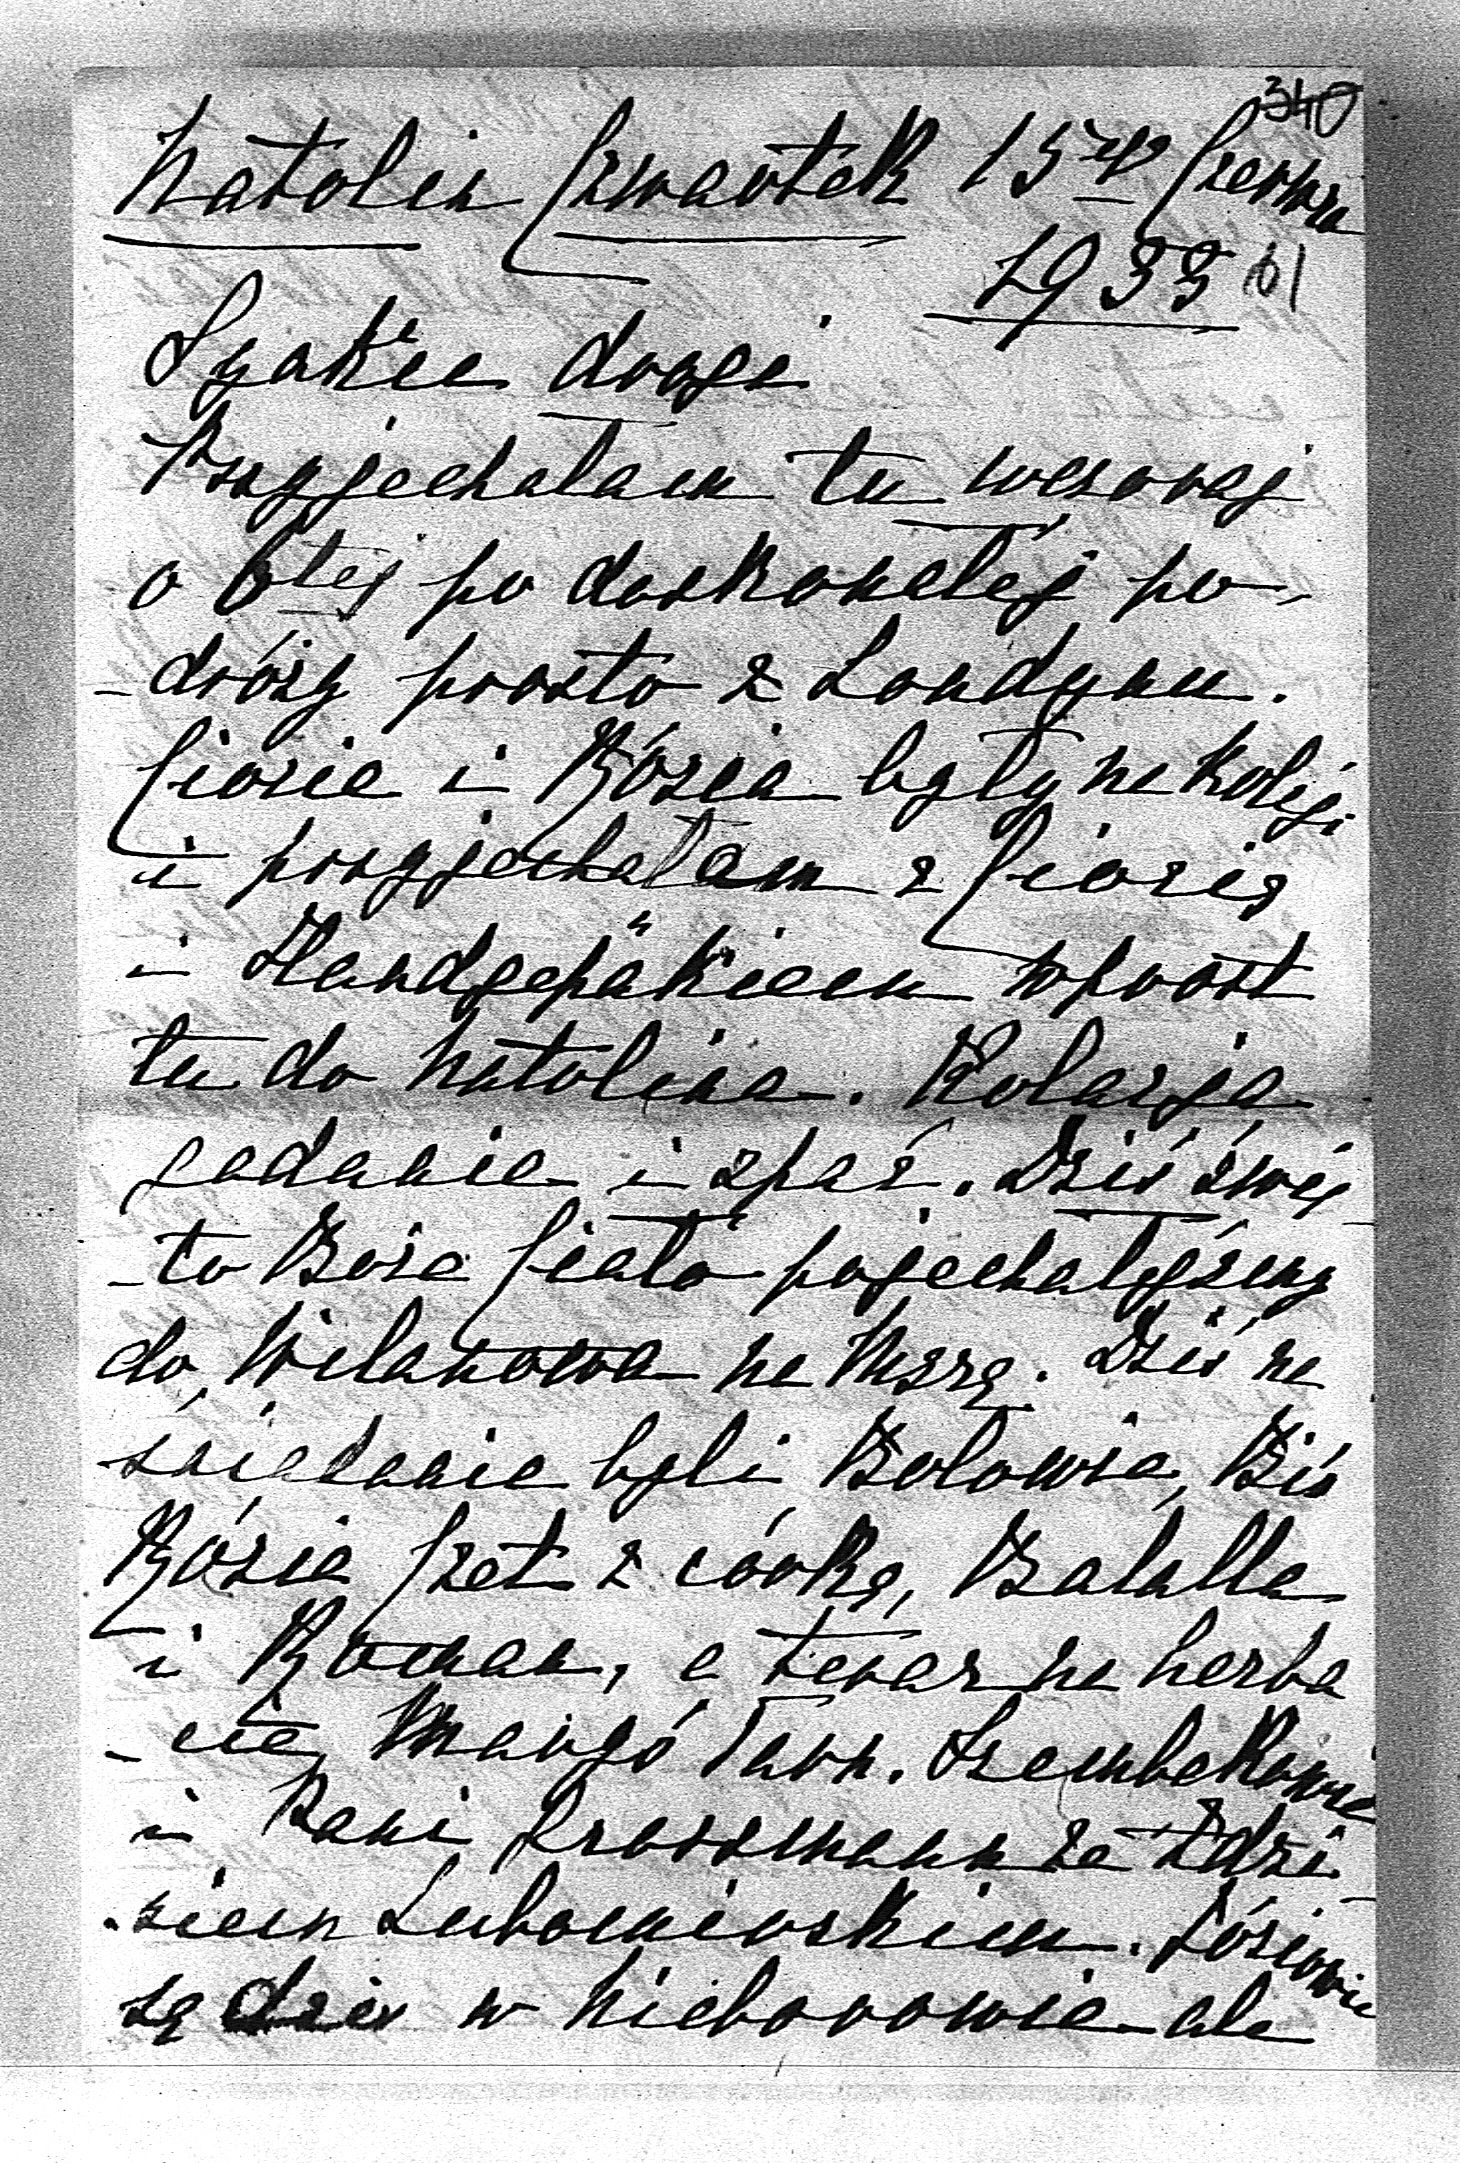 340
Natolin Czwartek 15go Czerwca
1933 61
Synku drogi
Przyjechałam tu wczoraj
o 6tej po doskonałej po-
-dróży prosto z Londynu.
Ciocia i Rózia były na koleji
i przyjechałam z Ciocią
i Handgepäkiem wprost
tu do Natolina. Kolacja
gadanie i spać. Dziś świę
-to Boże Ciało pojechałyśmy
do Wilanowa na Mszę. Dziś na
śniadanie byli Bolowie, Biś
Rózia Czet z córką, Balalla
i Roman, a teraz na herba
-cie, Margó Tarn. Szembekowie
i Pani Grossmann ze Zdzi
-siem Lubomirskim. Józiowie
są dziś w Nieborowie ale